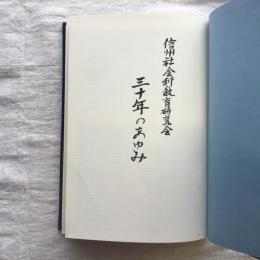 信州社会科教育研究会
三十年のあゆみ